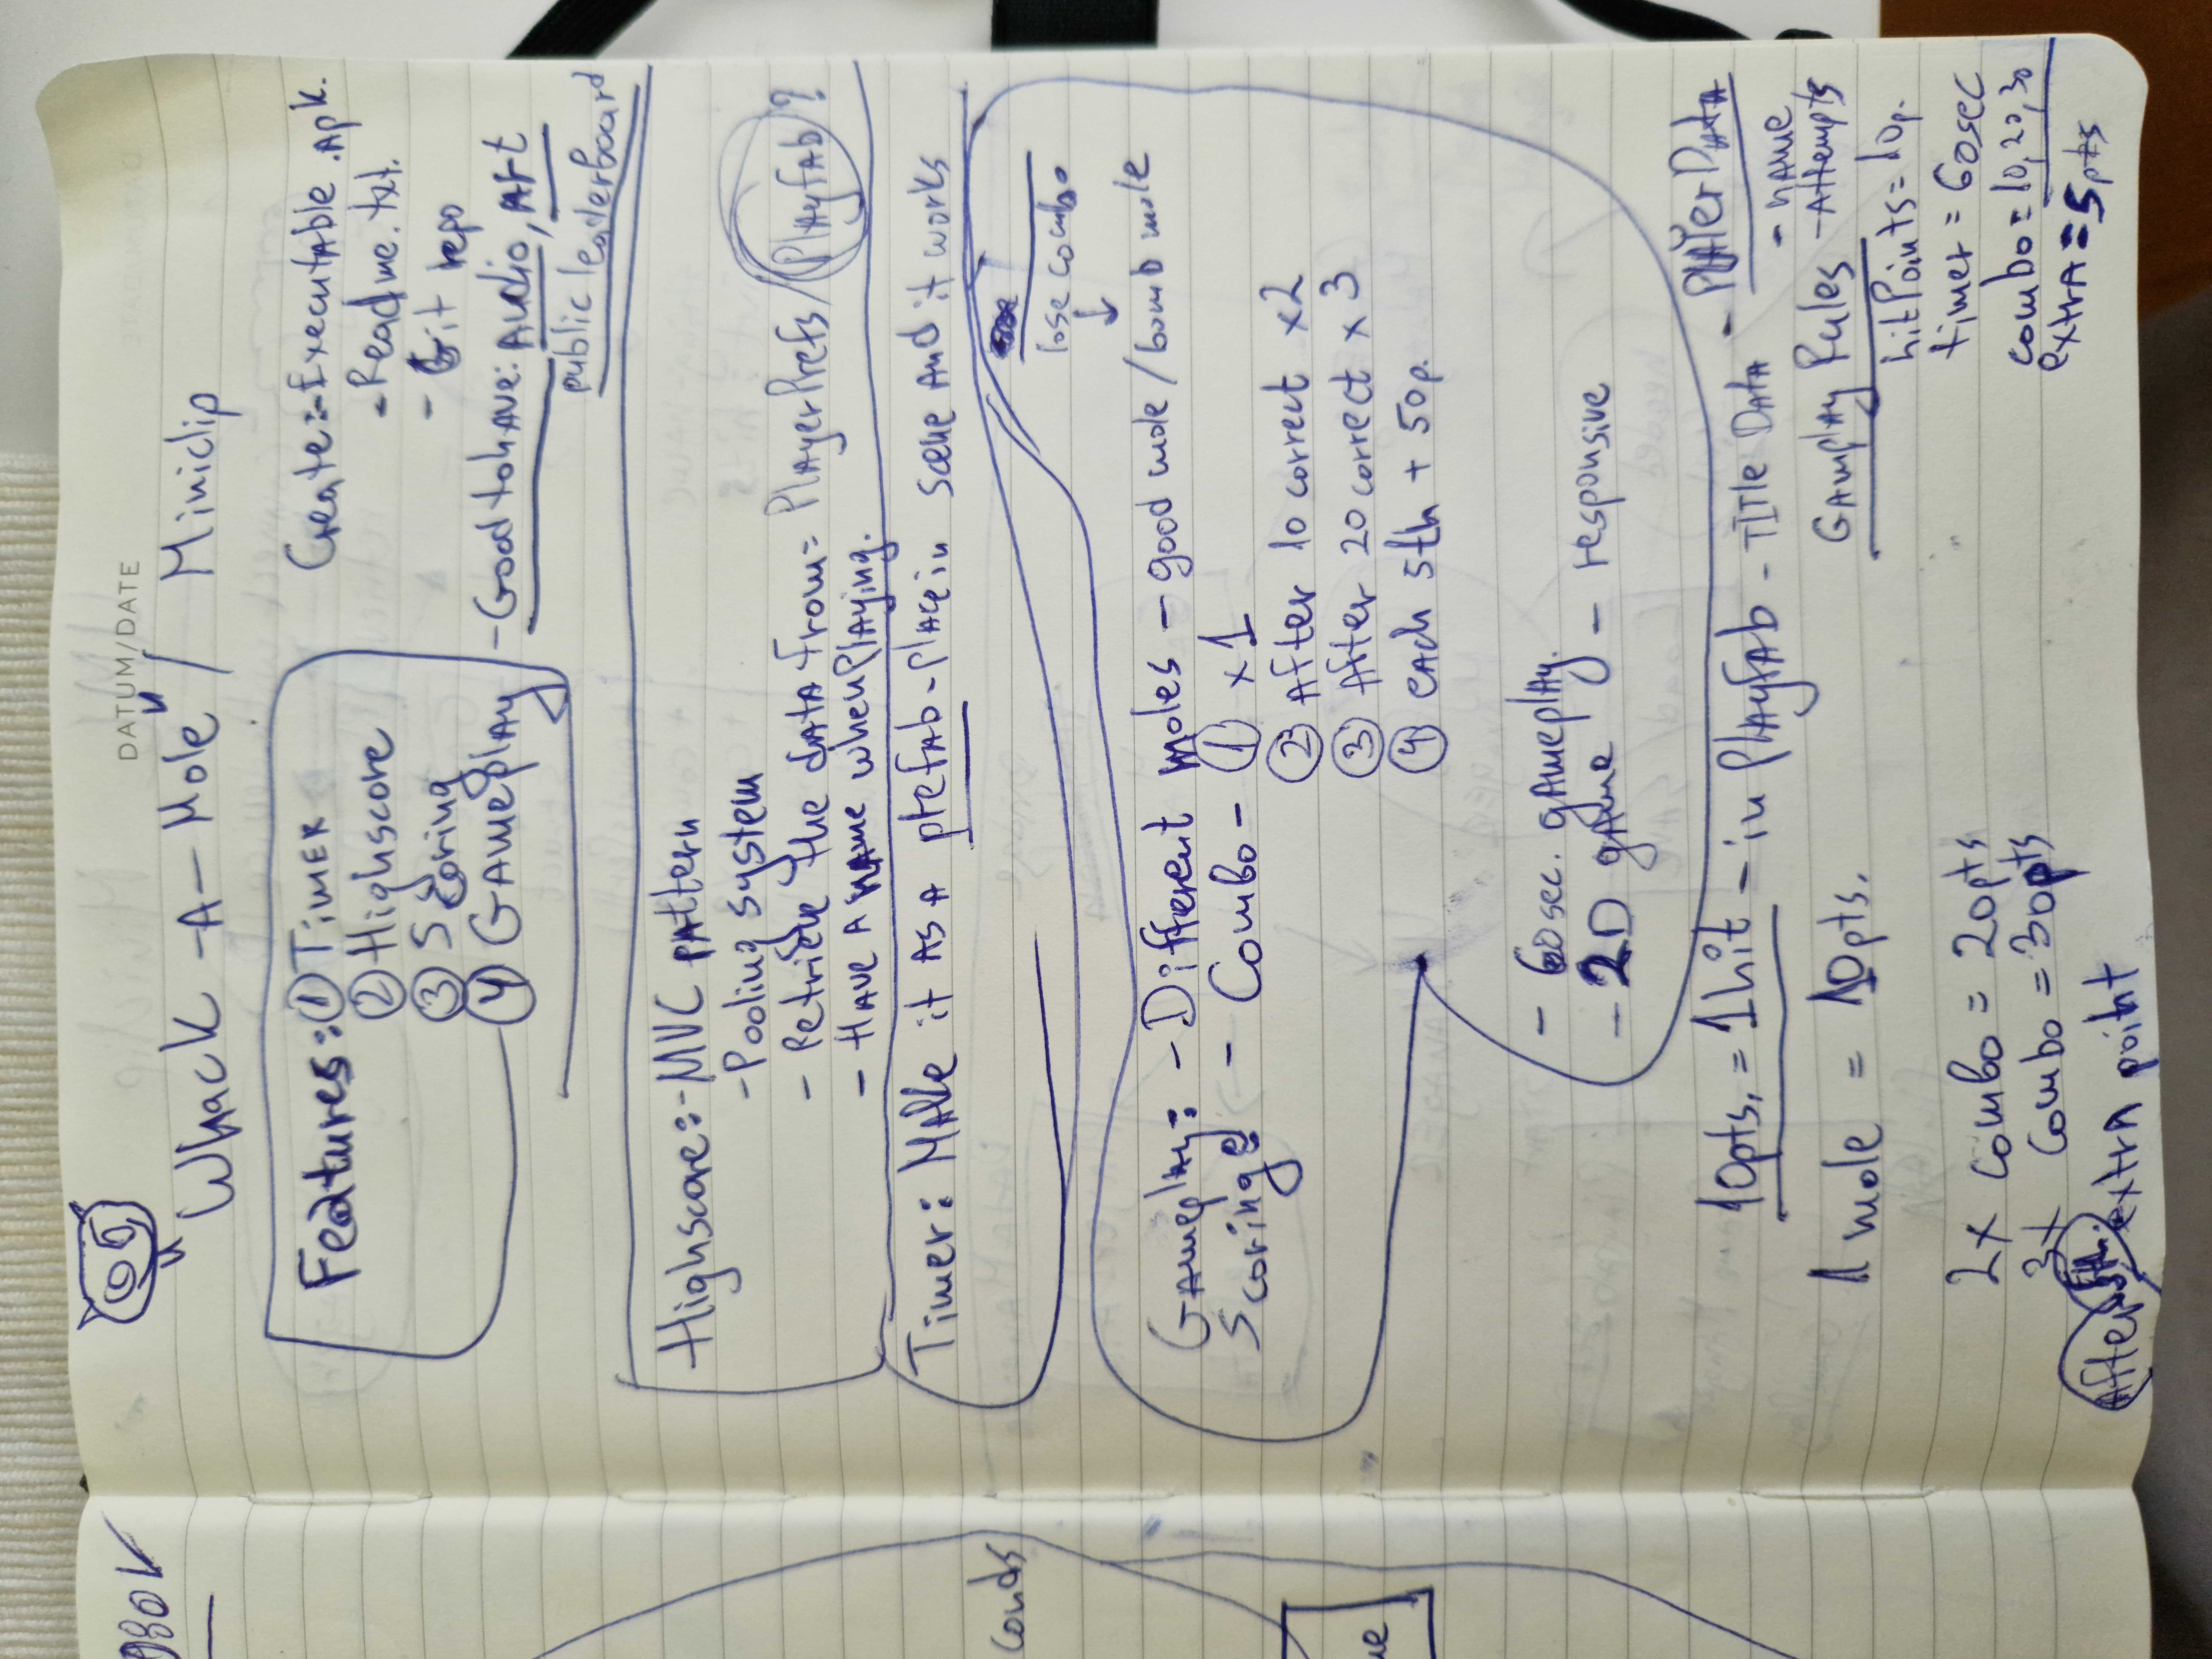 DATUM/DATE
Whack-A-Mole" / Miniclip
Features: ① TIMER
② Highscore
③ Scoring
④ GAMEplAy
Create: - ExecutAble .Apk.
- Readme.txt.
- Git repo
- Good to hAve: Audio, Art
public leaderboard
Highscore: - MVC pAttern
- Pooling system
- Retrieve the dAtA from = PlAyerPrefs / PlAyfAb ??
- HAve A nAme when PlAying.
Timer: MAke it As A prefAb - PlAce in scene And it works
lose combo
GAmeplAy: - Different moles - good mole / bomb mole
Scoring - Combo - ① x1
② After 10 correct x2
③ After 20 correct x3
④ eAch 5th + 50p.
- 60 sec. gAmeplAy.
- 2D gAme - responsive
10pts. = 1hit - in PlAyfAb - TITle DAtA - PlAyerDAtA
- nAme
- Attempts
1 mole = 10pts.
GAmplAy Rules
hitPoints = 10p.
timer = 60sec
2x combo = 20pts
3x combo = 30pts
combo = 10,20,30
extrA = 5pts
After 5th. extrA point
conds